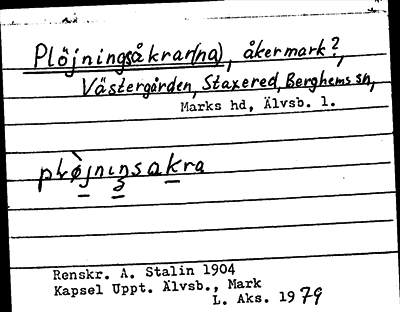 Plöjningsåkrar(na), åkermark?,
Västergården, Staxered, Berghems sn,
Marks hd, Älvsb. l.
plø̀jnınsakra
Renskr. A. Stalin 1904
Kapsel Uppt. Älvsb., Mark
L. Aks. 1979